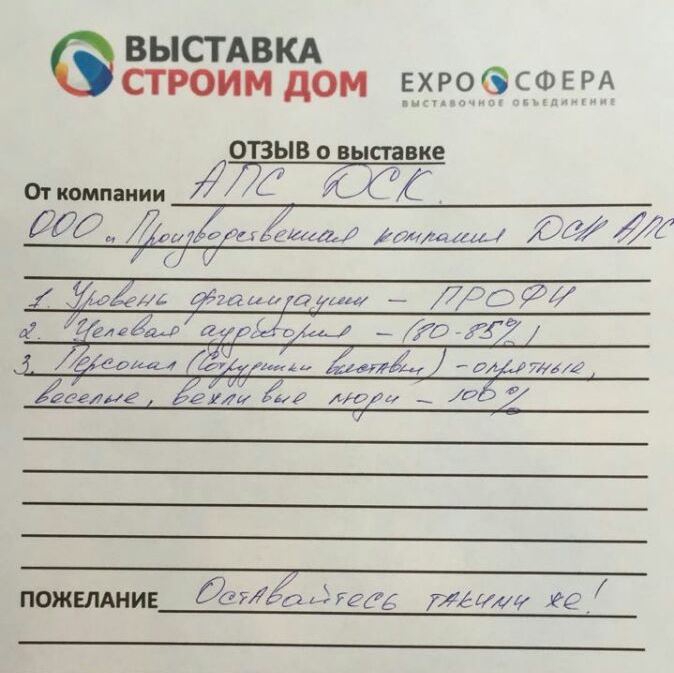 ВЫСТАВКА
СТРОИМ ДОМ
EXPO СФЕРА
ВЫСТАВОЧНОЕ ОБЪЕДИНЕНИЕ
ОТЗЫВ о выставке
От компании АПС ДСК.
ООО "Производственная компания ДСК АПС
1. Уровень организации – ПРОФИ
2. Целевая аудитория – (80-85%)
3. Персонал (Сотрудники выставки) – опрятные,
веселые, вежливые люди – 100%
ПОЖЕЛАНИЕ Оставайтесь такими же!